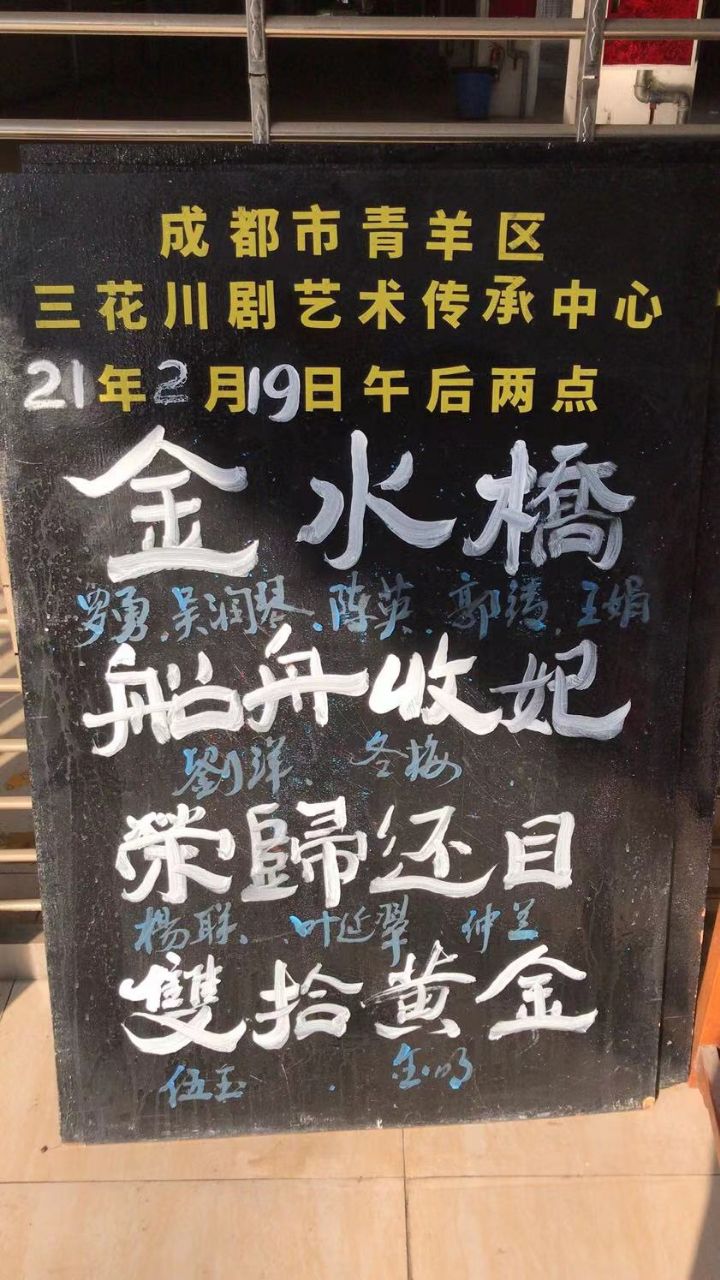 成都市青羊区
三花川剧艺术传承中心
21年2月19日午后两点
金水橋
罗勇.吴润琴、陈英.郭清.王娟
船舟收妃
劉洋、冬梅
荣歸还目
楊联.叶延翠 仲兰
雙拾黄金
伍玉.金明